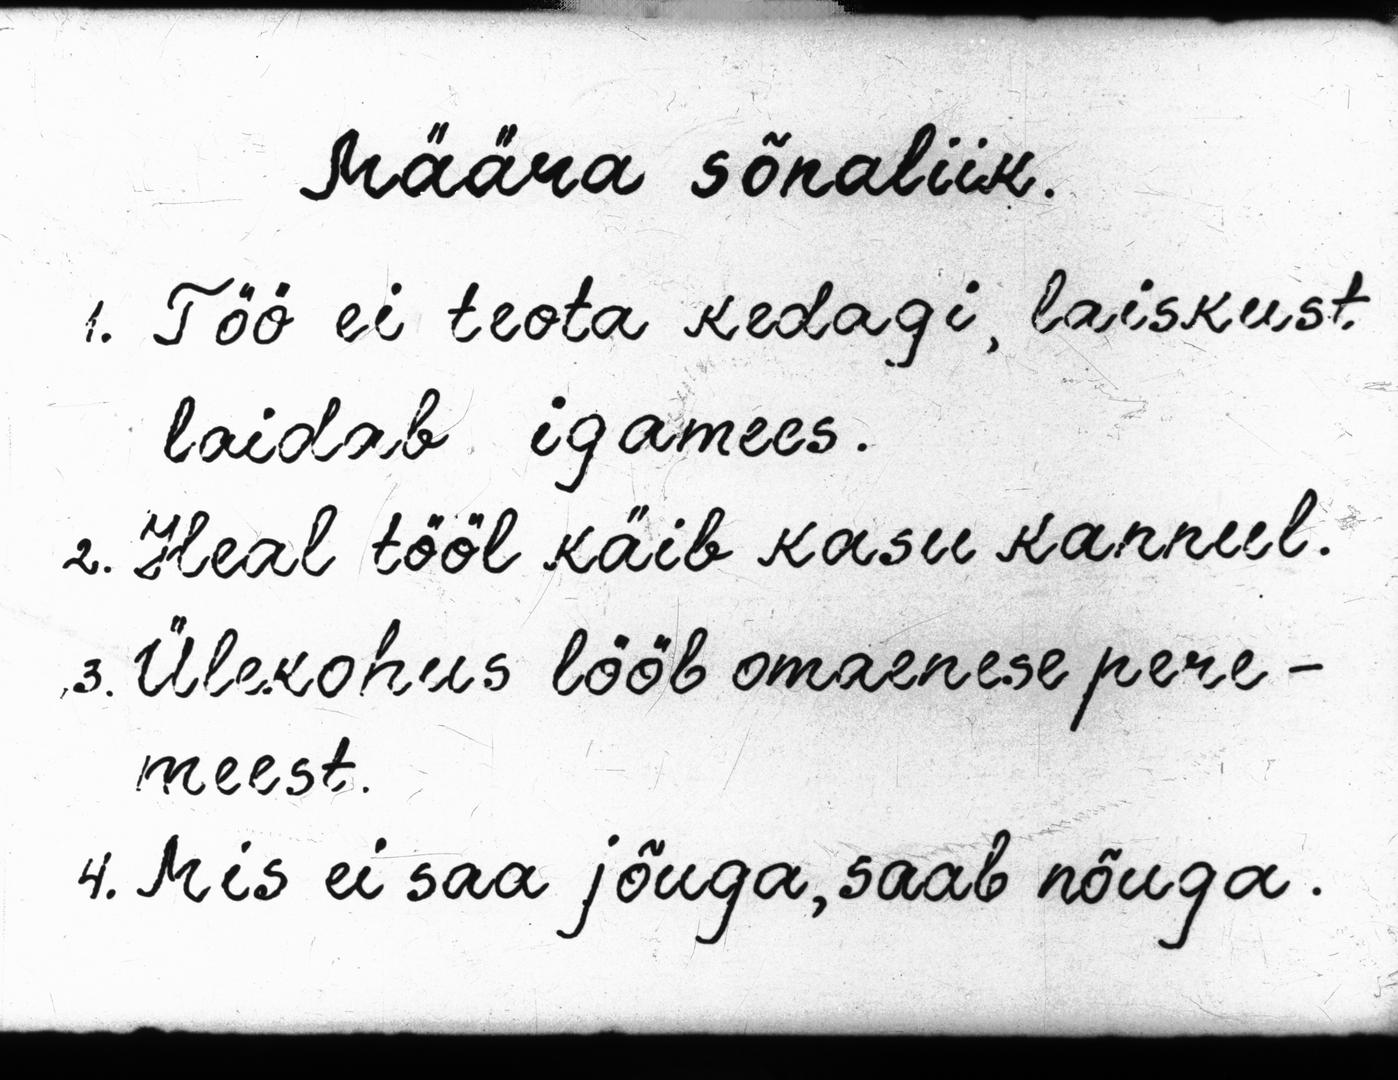 Määra sõnaliik.
1. Töö ei teota kedagi, laiskust
laidab igamees.
2. Heal tööl käib kasu kannul.
3. Ülekohus lööb omaenese pere-
meest.
4. Mis ei saa jõuga, saab nõuga.